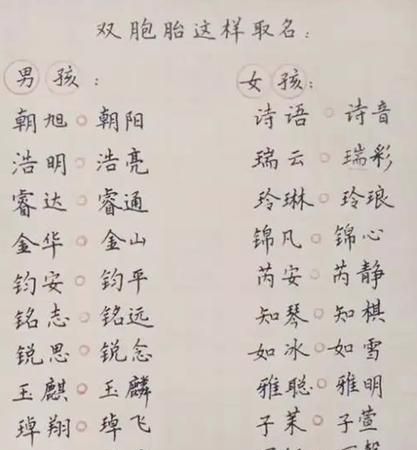 双胞胎这样取名:
男孩: 女孩:
朝旭。朝阳 诗语。诗音
浩明。浩亮 瑞云。瑞彩
睿达。睿通 玲琳。玲琅
金华。金山 锦凡。锦心
钧安。钧平 芮安。芮静
铭志。铭远 知琴。知棋
锐思。锐念 如冰。如雪
玉麒。玉麟 雅聪。雅明
琸翔。琸飞 子茉。子萱